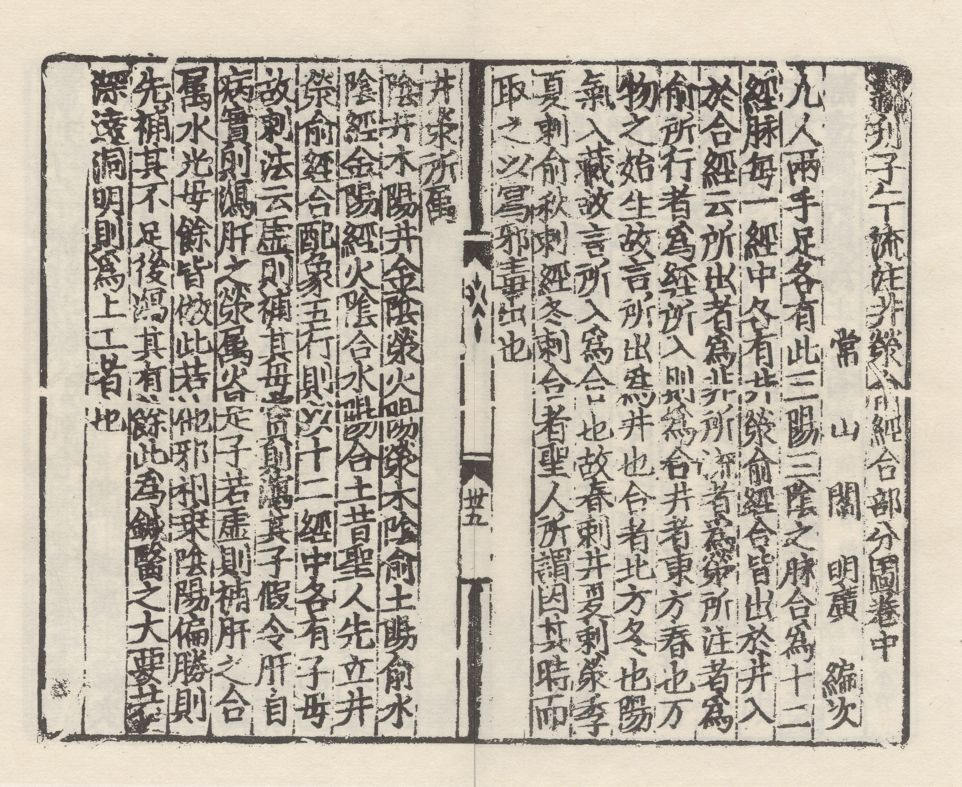 新刋子午流注井滎俞經合部分圖卷中
常山閻明廣編次
凡人兩手足各有此三陽三陰之脉合爲十二
經脉每一經中各有井滎俞經合皆出於井入
於合經云所出者爲井所流者爲滎所注者爲
俞所行者爲經所入則爲合井者東方春也万
物之始生故言所出爲井也合者北方冬也陽
氣入藏故言所入爲合也故春刺井夏刺滎季
夏刺俞秋刺經冬刺合者聖人所謂因其時而
取之以冩邪毒出也
卅五
井滎所属
陰井木陽井金陰滎火陽滎水陰俞土陽俞木
陰經金陽經火陰合水陽合土昔聖人先立井
滎俞經合配象五行則以十二經中各有子母
故刺法云虚則補其母實則瀉其子假令肝自
病實則瀉肝之滎属火是子若虚則補肝之合
属水是母餘皆倣此若他邪相乗陰陽偏勝則
先補其不足後瀉其有餘此爲鍼醫之大要若
深逺洞明則爲上工者也